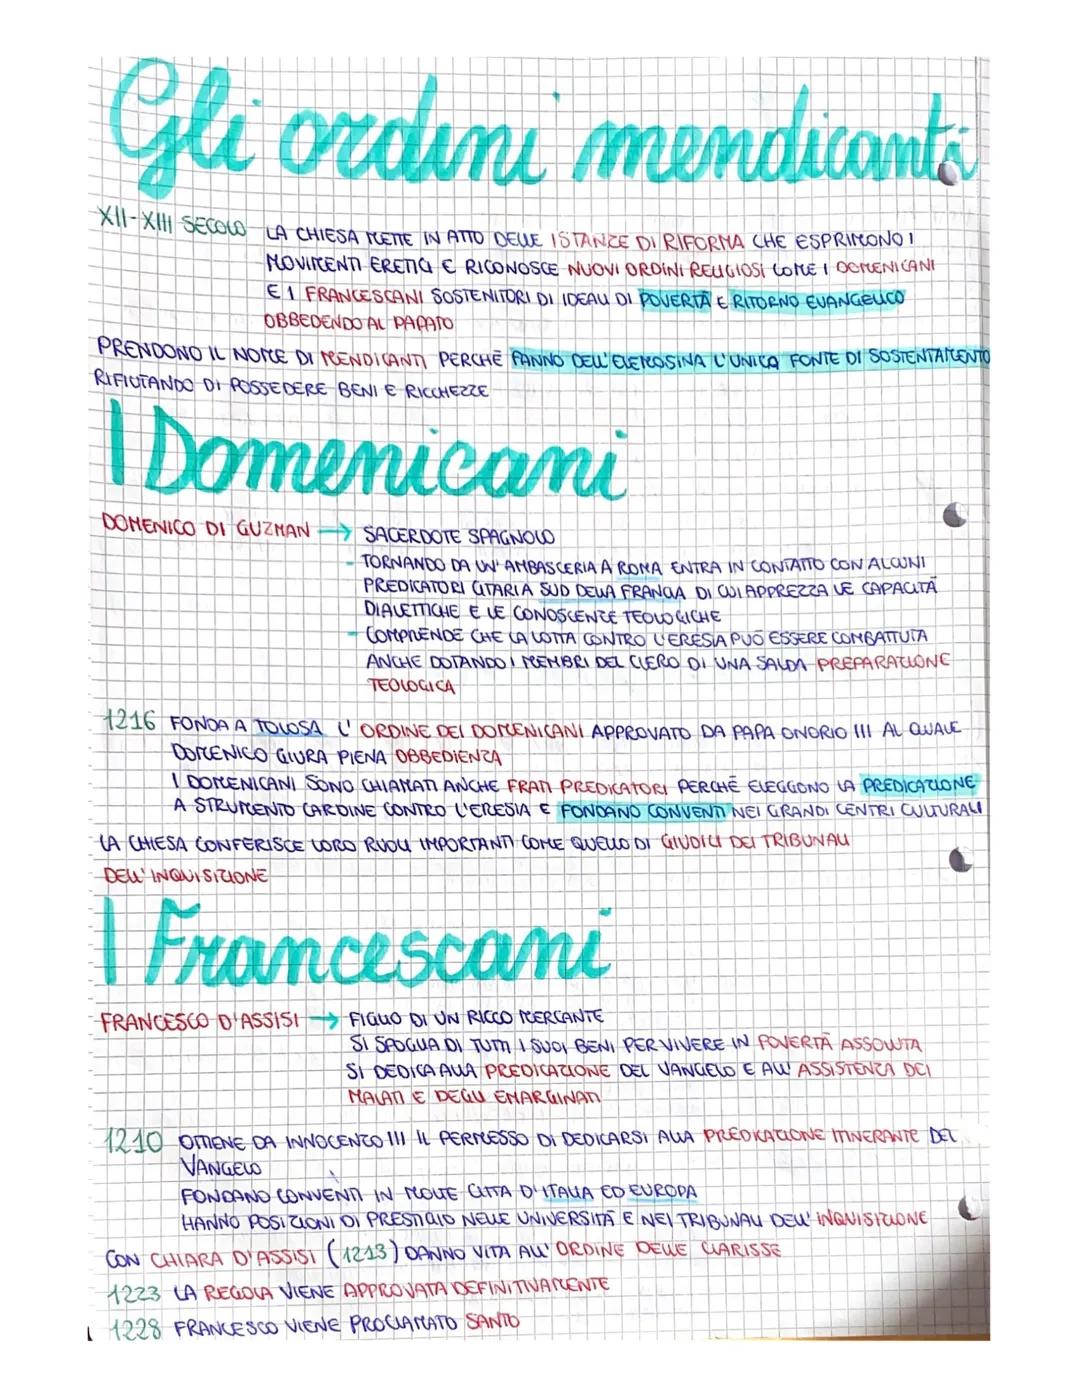 Gli ordini mendicanti
XII-XIII SECOLO LA CHIESA METTE IN ATTO DELLE ISTANZE DI RIFORMA CHE ESPRIMONO I
MOVIMENTI ERETICI E RICONOSCE NUOVI ORDINI RELIGIOSI COME I DOMENICANI
E I FRANCESCANI SOSTENITORI DI IDEALI DI POVERTÀ E RITORNO EVANGELICO
OBBEDENDO AL PAPATO
PRENDONO IL NOME DI MENDICANTI PERCHÉ FANNO DELL'ELEMOSINA L'UNICA FONTE DI SOSTENTAMENTO
RIFIUTANDO DI POSSEDERE BENI E RICCHEZZE
I Domenicani
DOMENICO DI GUZMAN → SACERDOTE SPAGNOLO
- TORNANDO DA UN'AMBASCERIA A ROMA ENTRA IN CONTATTO CON ALCUNI
PREDICATORI CATARI A SUD DELLA FRANCIA DI CUI APPREZZA LE CAPACITÀ
DIALETTICHE E LE CONOSCENZE TEOLOGICHE
- COMPRENDE CHE LA LOTTA CONTRO L'ERESIA PUÒ ESSERE COMBATTUTA
ANCHE DOTANDO I MEMBRI DEL CLERO DI UNA SALDA PREPARAZIONE
TEOLOGICA
1216 FONDA A TOLOSA L'ORDINE DEI DOMENICANI APPROVATO DA PAPA ONORIO III AL QUALE
DOMENICO GIURA PIENA OBBEDIENZA
I DOMENICANI SONO CHIAMATI ANCHE FRATI PREDICATORI PERCHÉ ELEGGONO LA PREDICAZIONE
A STRUMENTO CARDINE CONTRO L'ERESIA E FONDANO CONVENTI NEI GRANDI CENTRI CULTURALI
LA CHIESA CONFERISCE LORO RUOLI IMPORTANTI COME QUELLO DI GIUDICI DEI TRIBUNALI
DELL'INQUISIZIONE
I Francescani
FRANCESCO D'ASSISI → FIGLIO DI UN RICCO MERCANTE
SI SPOGLIA DI TUTTI I SUOI BENI PER VIVERE IN POVERTÀ ASSOLUTA
SI DEDICA ALLA PREDICAZIONE DEL VANGELO E ALL'ASSISTENZA DEI
MALATI E DEGLI EMARGINATI
1210 OTTIENE DA INNOCENZO III IL PERMESSO DI DEDICARSI ALLA PREDICAZIONE ITINERANTE DEL
VANGELO
FONDANO CONVENTI IN MOLTE CITTÀ D'ITALIA ED EUROPA
HANNO POSIZIONI DI PRESTIGIO NELLE UNIVERSITÀ E NEI TRIBUNALI DELL'INQUISIZIONE
CON CHIARA D'ASSISI (1213) DANNO VITA ALL'ORDINE DELLE CLARISSE
1223 LA REGOLA VIENE APPROVATA DEFINITIVAMENTE
1228 FRANCESCO VIENE PROCLAMATO SANTO